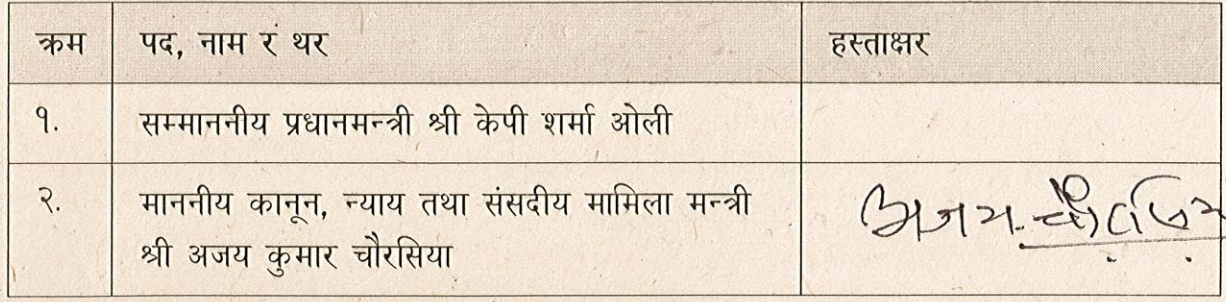 क्रम पद, नाम र थर हस्ताक्षर
१. सम्माननीय प्रधानमन्त्री श्री केपी शर्मा ओली
२. माननीय कानून, न्याय तथा संसदीय मामिला मन्त्री
श्री अजय कुमार चौरसिया
अजय